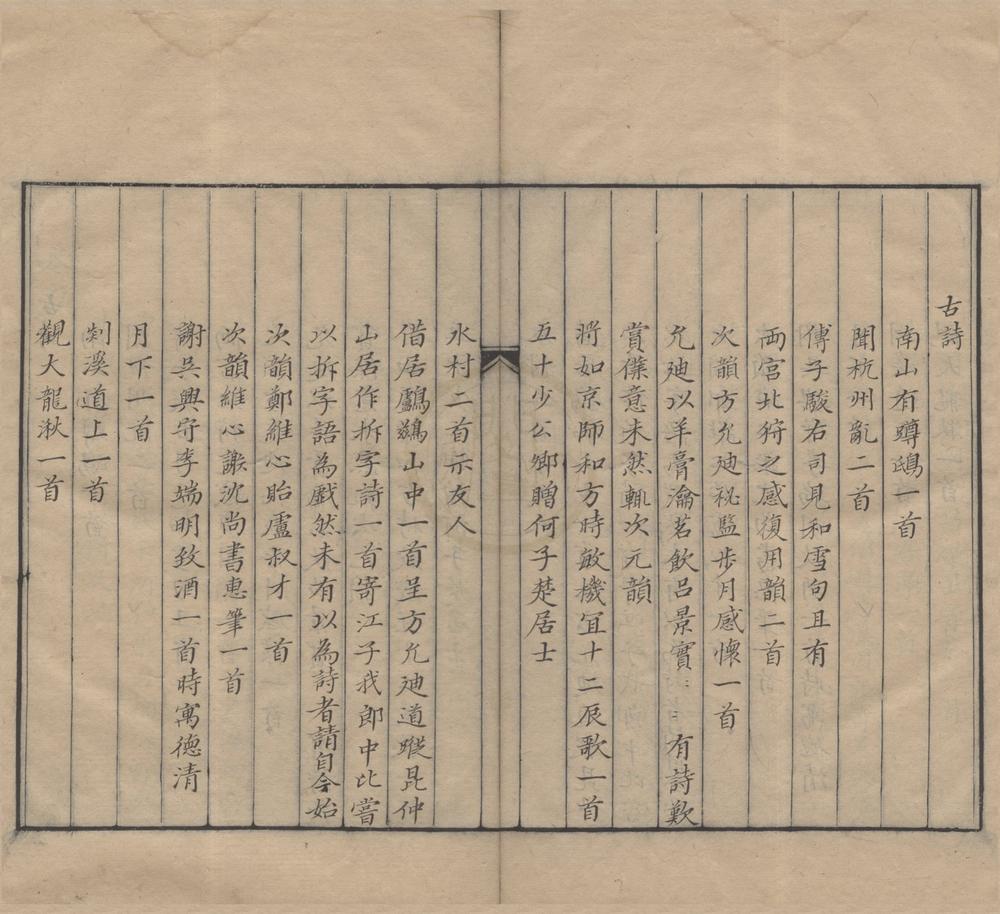 古詩
南山有蹲鴟一首
聞杭州亂二首
傅子駿右司見和雪句且有
兩宮北狩之感復用韻二首
次韻方允廸秘監步月感懷一首
允廸以羊膏瀹茗飲呂景實:有詩歎
賞僕意未然輒次元韻
將如京師和方時敏機冝十二辰歌一首
五十少公鄉贈何子楚居士
水村二首示友人
借居鸕鷀山中一首呈方允廸道蹤昆仲
山居作拆字詩一首寄江子我郎中比嘗
以拆字語為戲然未有以為詩者請自今始
次韻鄭維心貽盧叔才一首
次韻維心謝沈尚書惠筆一首
謝吳興守李端明致酒一首時寓德清
月下一首
剡溪道上一首
觀大龍湫一首